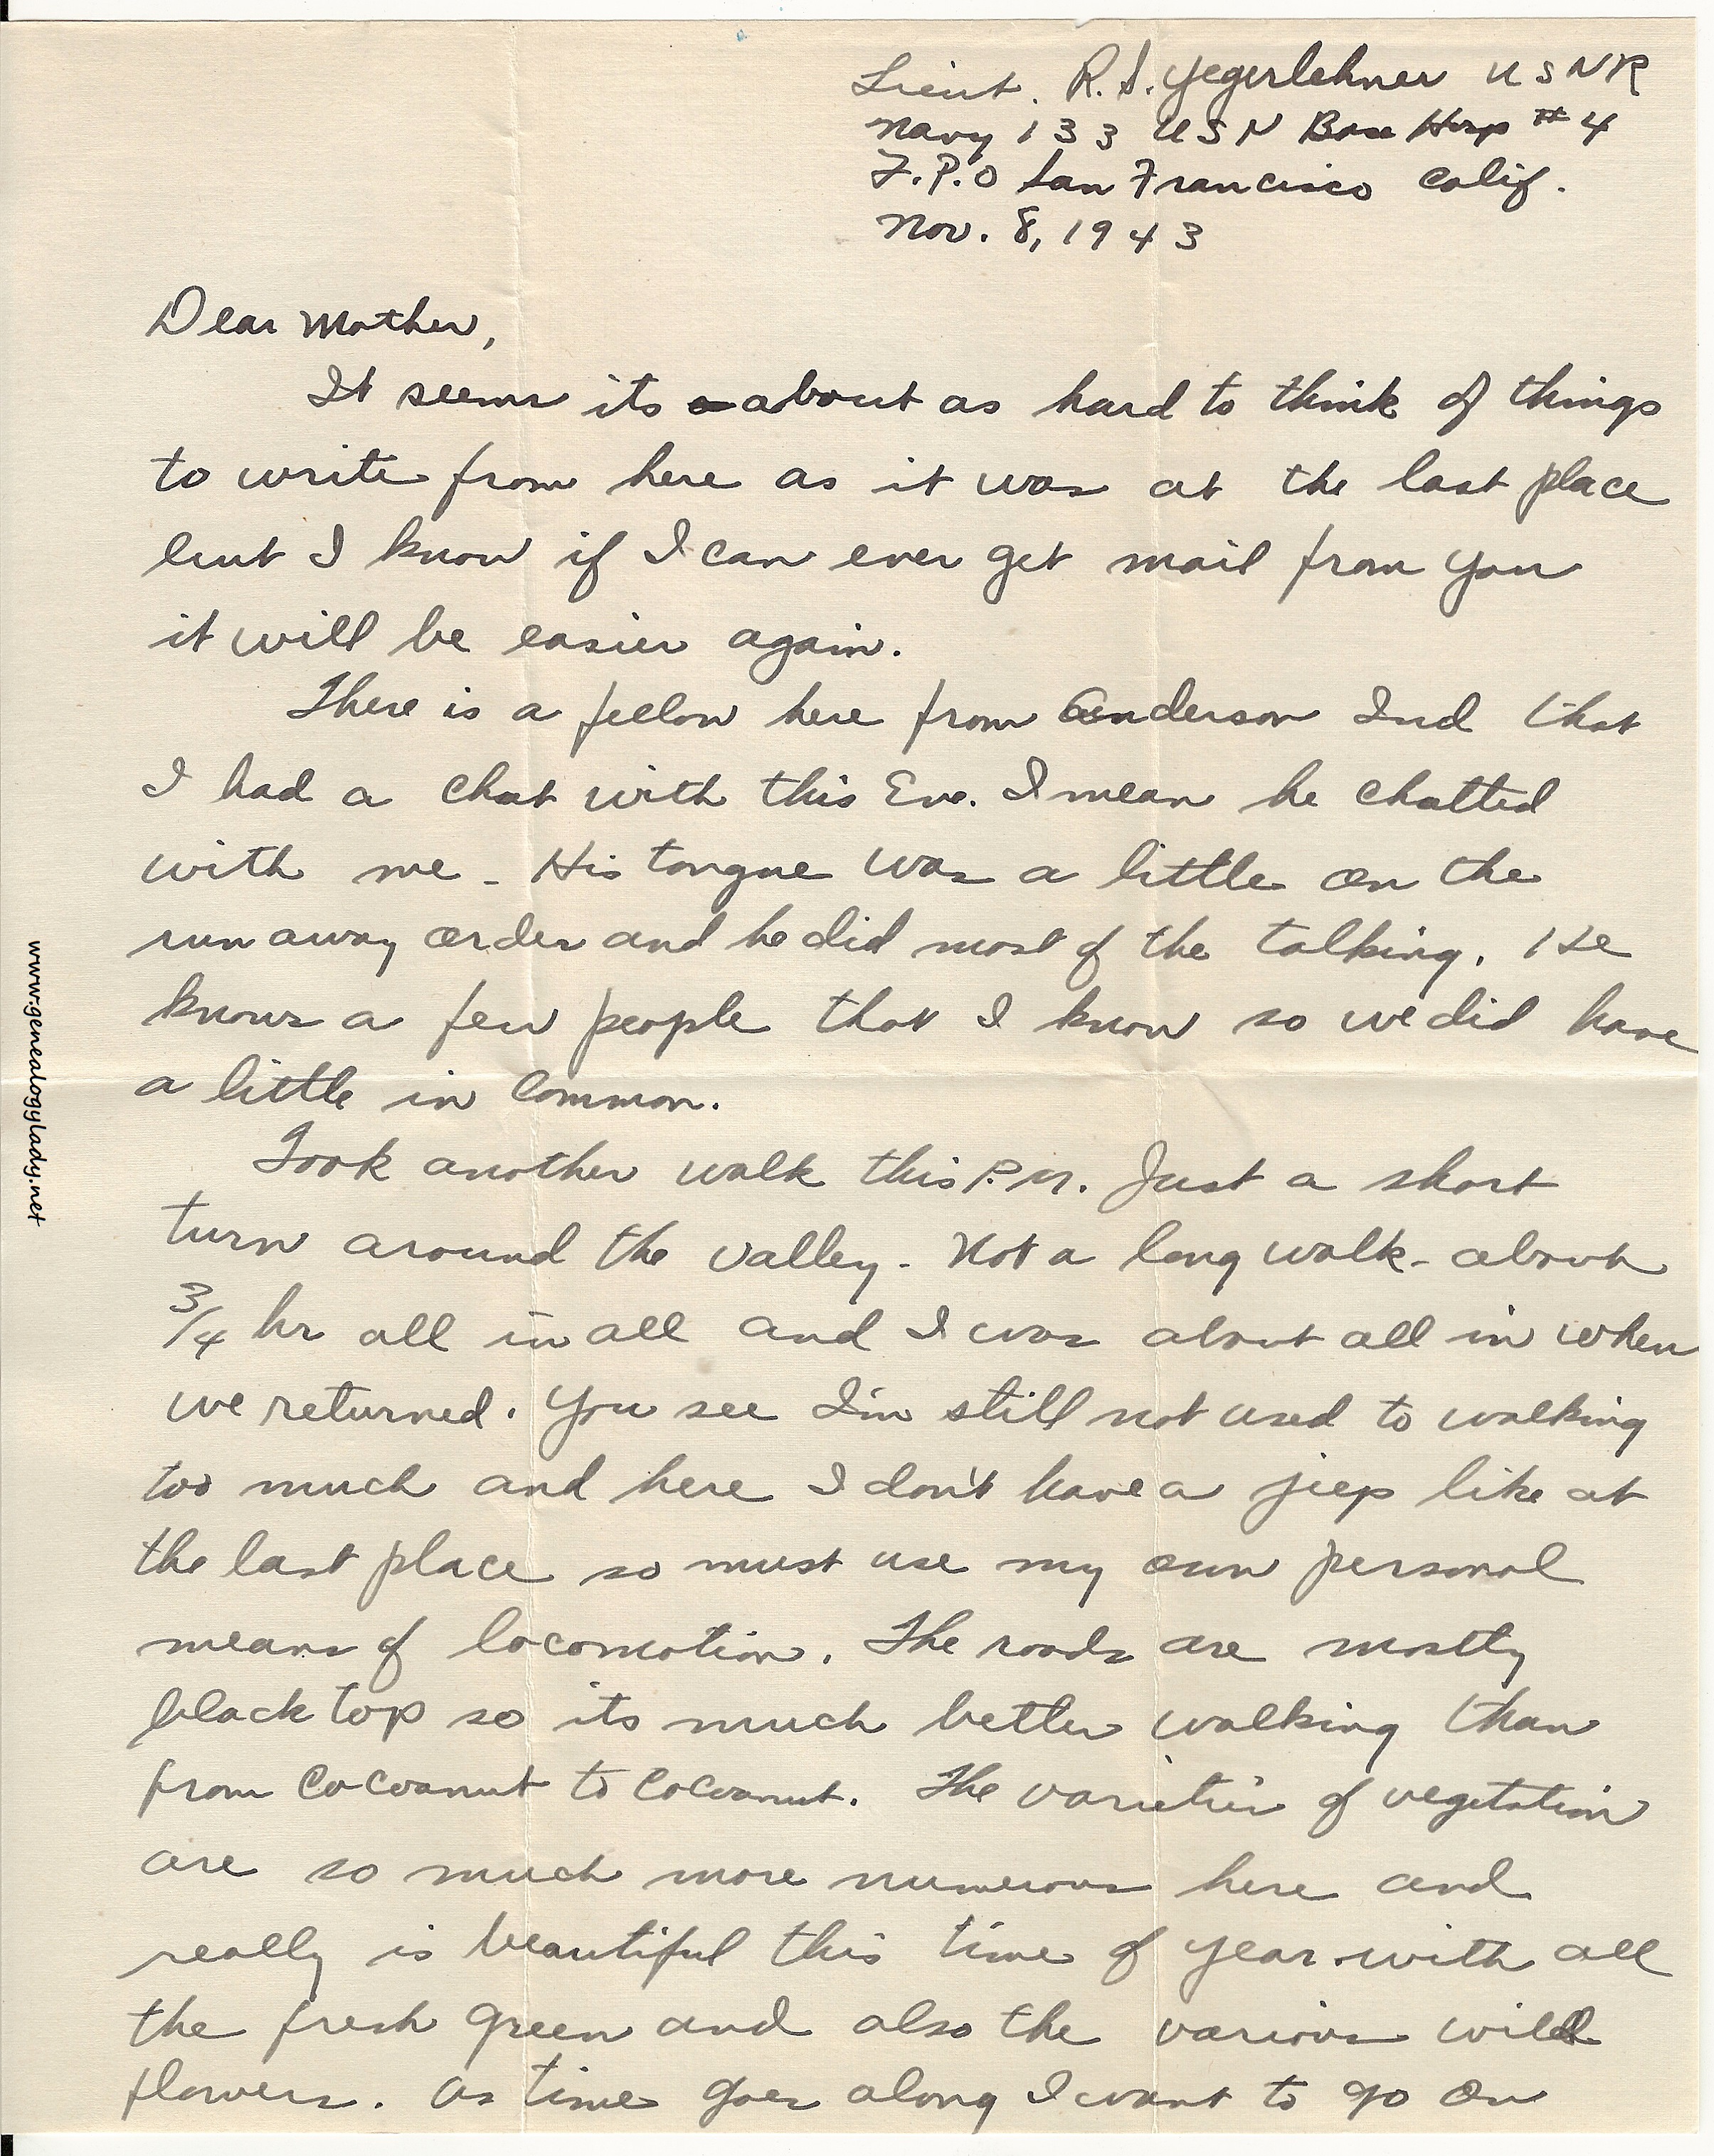 Lieut. R. S. Yegerlehner USNR
Navy 133 USN Base Hosp #4
F.P.O San Francisco Calif.
Nov. 8, 1943
Dear Mother,
It seems its about as hard to think of things
to write from here as it was at the last place
but I know if I can ever get mail from you
it will be easier again.
There is a fellow here from Anderson Ind that
I had a chat with this Eve. I mean he chatted
with me - His tongue was a little on the
run away order and he did most of the talking. He
knows a few people that I know so we did have
a little in common.
Took another walk this P.M. Just a short
turn around the valley - Not a long walk - about
3/4 hr all in all and I was about all in when
we returned. You see I'm still not used to walking
too much and here I don't have a jeep like at
the last place so must use my own personal
means of locomotion. The roads are mostly
black top so its much better walking than
from cocoanut to cocoanut. The varieties of vegetation
are so much more numerous here and
really is beautiful this time of year with all
the fresh green and also the various wild
flowers. As time goes along I want to go on
www.genealogylady.net